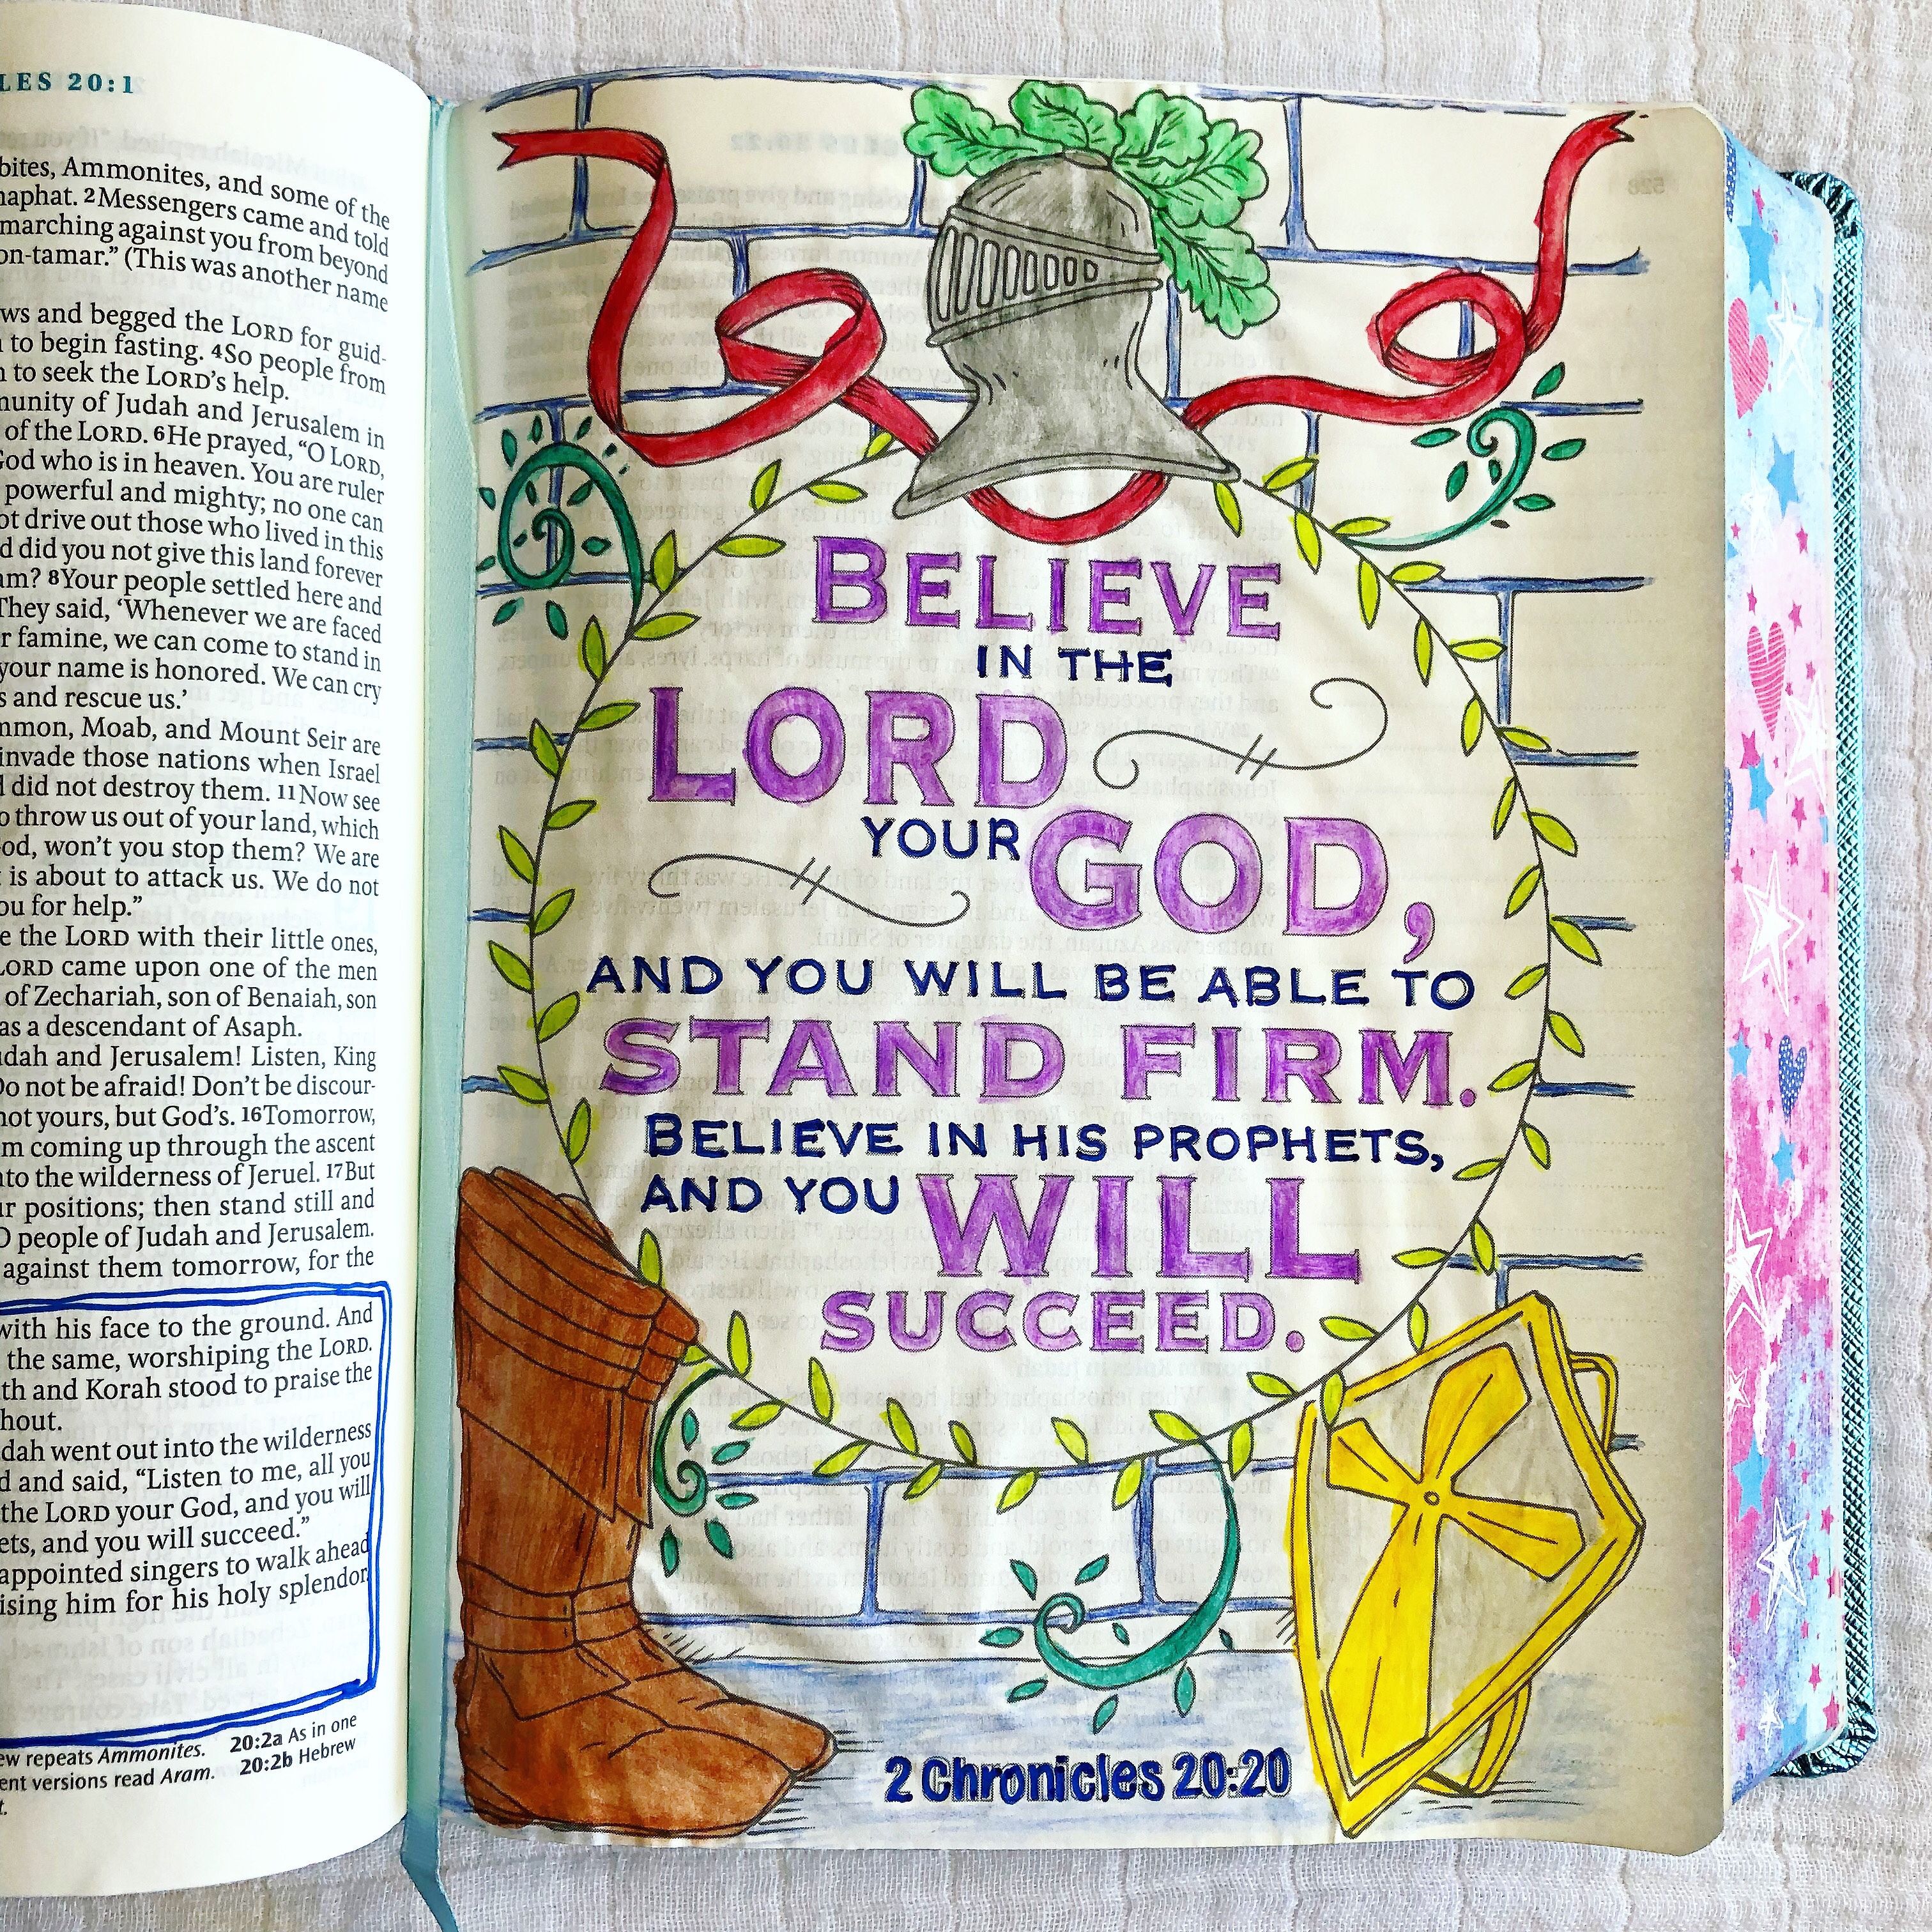 LES 20:1
bites, Ammonites, and some of the
haphat. 2Messengers came and told
marching against you from beyond
on-tamar.” (This was another name
ws and begged the LORD for guid-
to begin fasting. 4So people from
to seek the LORD’s help.
munity of Judah and Jerusalem in
of the LORD. 6He prayed, “O LORD,
God who is in heaven. You are ruler
powerful and mighty; no one can
ot drive out those who lived in this
d did you not give this land forever
am? 8Your people settled here and
They said, ‘Whenever we are faced
r famine, we can come to stand in
your name is honored. We can cry
s and rescue us.’
mmon, Moab, and Mount Seir are
invade those nations when Israel
d did not destroy them. 11Now see
o throw us out of your land, which
od, won’t you stop them? We are
is about to attack us. We do not
ou for help.”
e the LORD with their little ones,
LORD came upon one of the men
of Zechariah, son of Benaiah, son
as a descendant of Asaph.
udah and Jerusalem! Listen, King
Do not be afraid! Don’t be discour-
not yours, but God’s. 16Tomorrow,
m coming up through the ascent
nto the wilderness of Jeruel. 17But
ur positions; then stand still and
O people of Judah and Jerusalem.
against them tomorrow, for the
with his face to the ground. And
the same, worshiping the LORD.
th and Korah stood to praise the
hout.
udah went out into the wilderness
d and said, “Listen to me, all you
the LORD your God, and you will
ets, and you will succeed.”
appointed singers to walk ahead
ising him for his holy splendor.
ew repeats Ammonites. 20:2a As in one
ent versions read Aram. 20:2b Hebrew
t.
BELIEVE
IN THE
LORD
YOUR GOD,
AND YOU WILL BE ABLE TO
STAND FIRM.
BELIEVE IN HIS PROPHETS,
AND YOU WILL
SUCCEED.
2 Chronicles 20:20